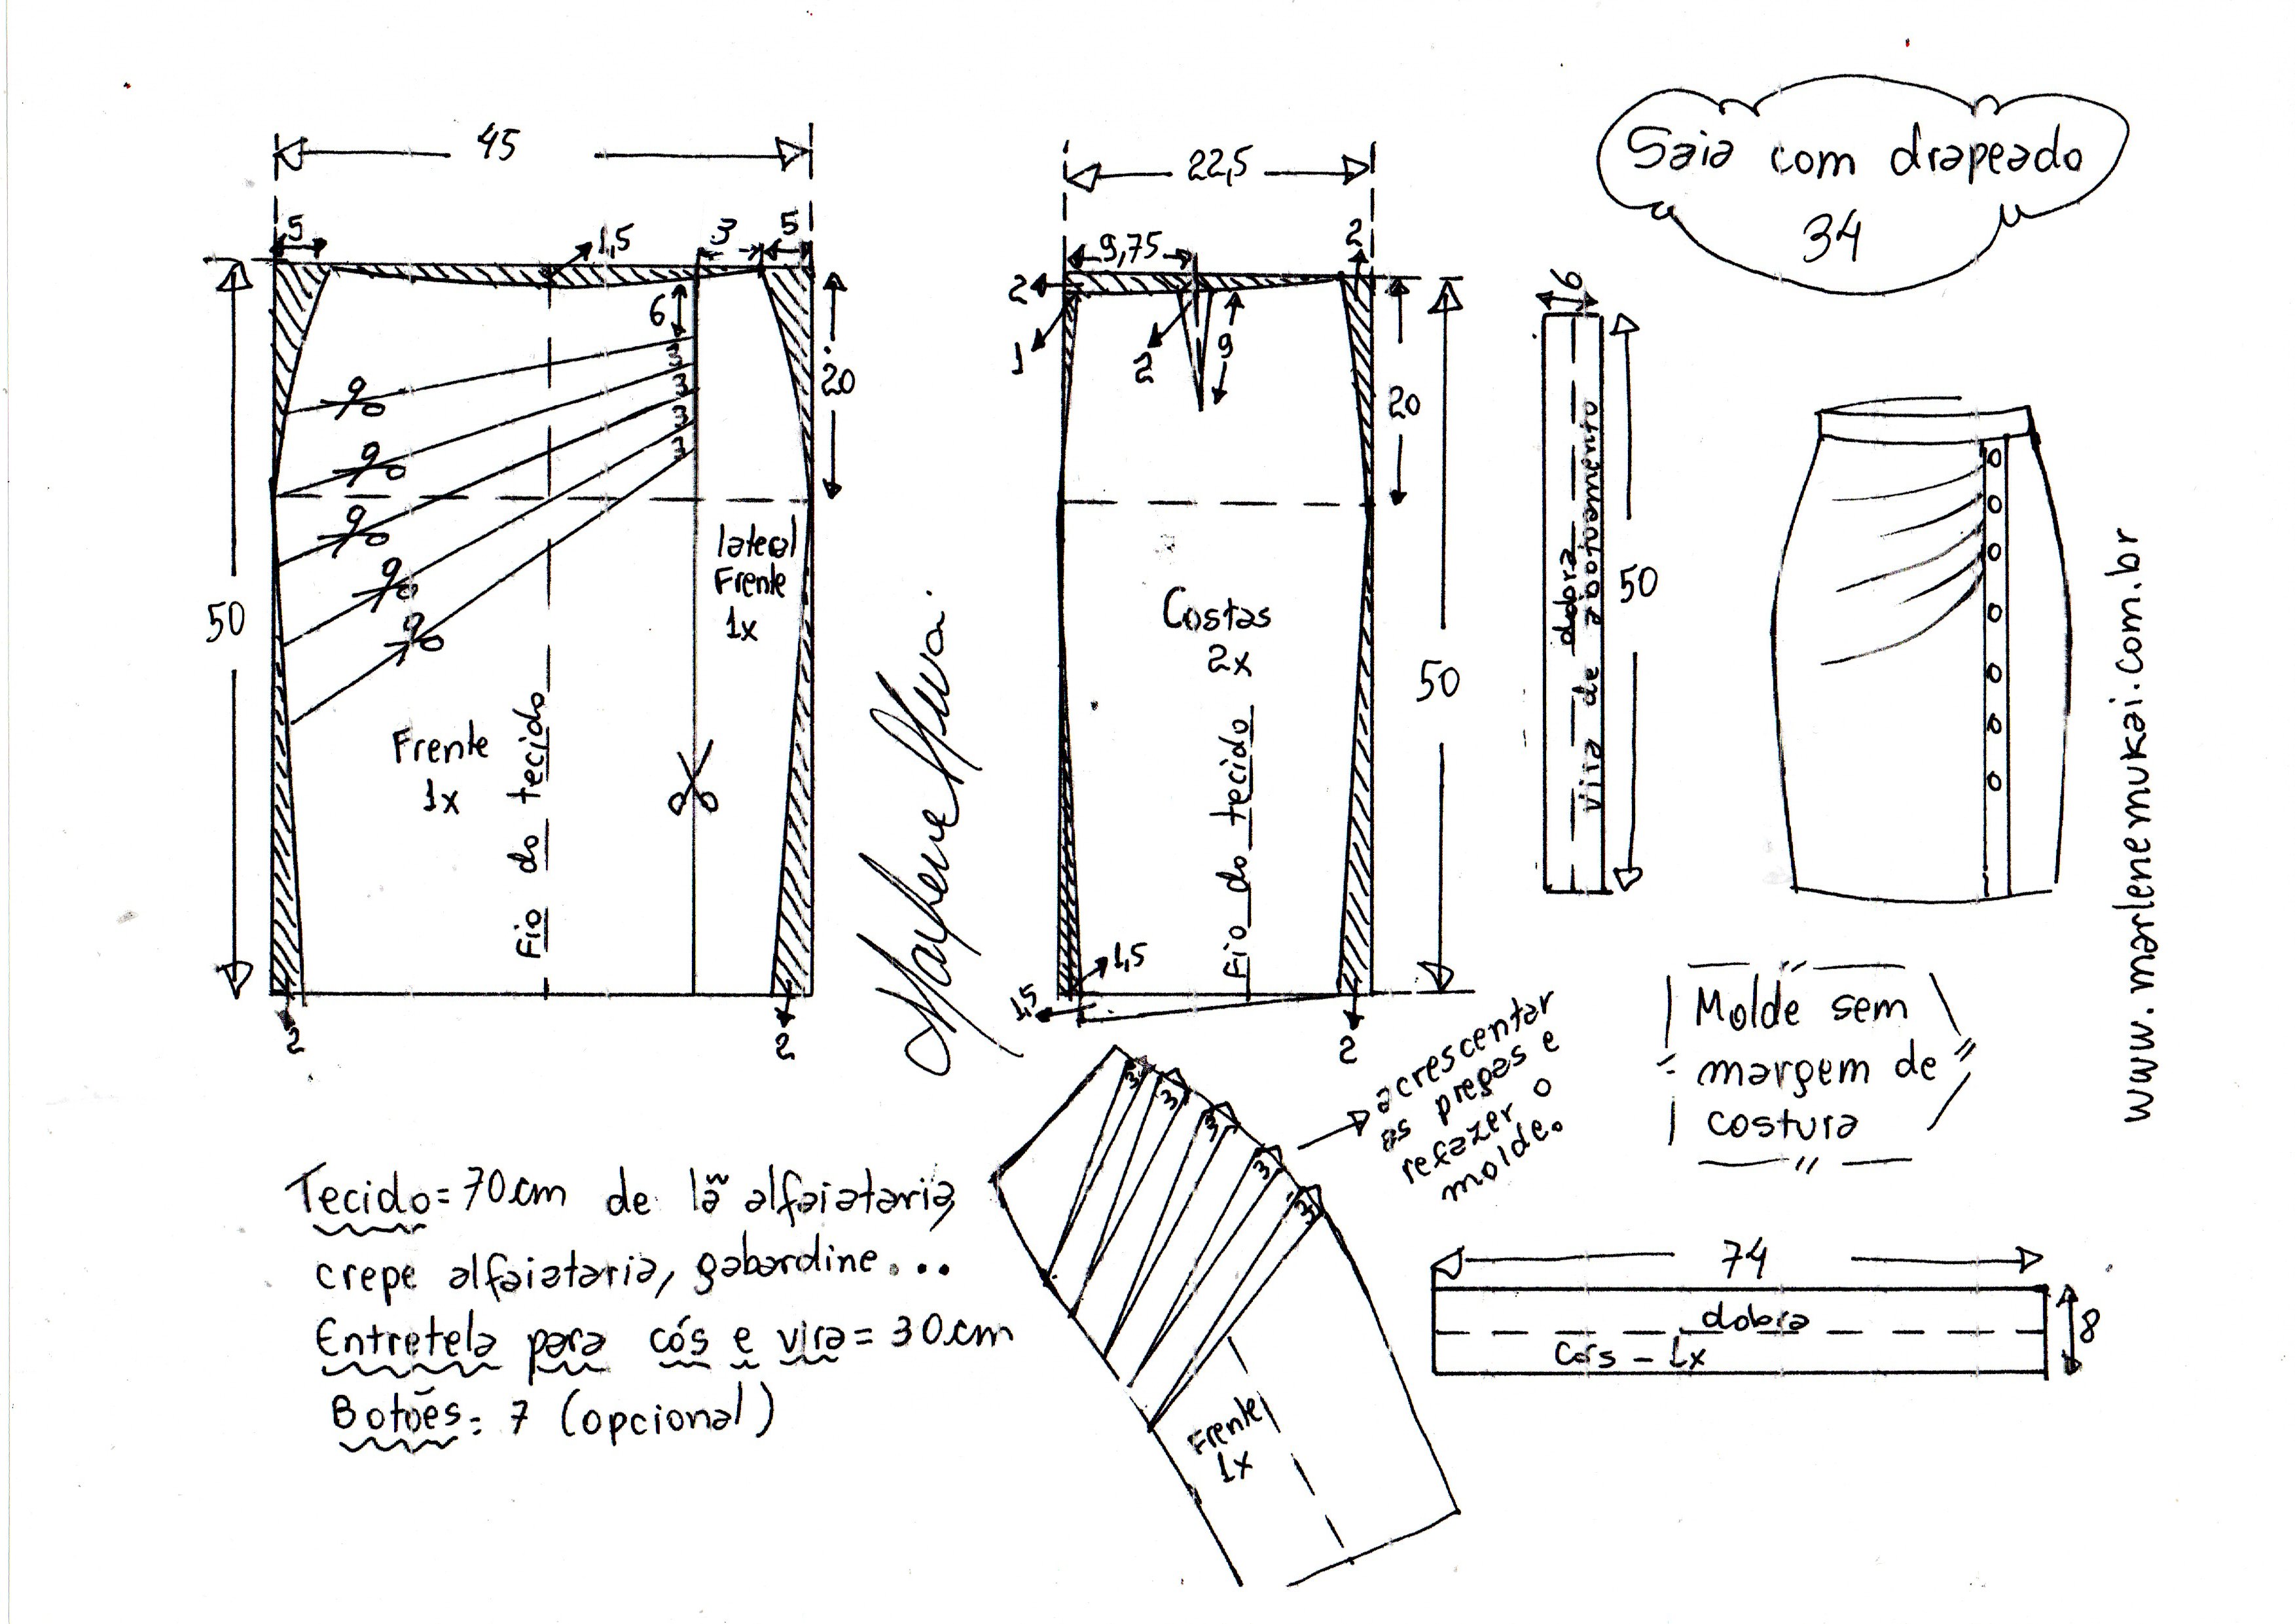 Saia com drapeado
34
45
5
1,5
3
5
6
3
3
3
3
20
50
lateral
Frente
1x
Frente
1x
Fio do tecido
2
2
22,5
9,75
2
2
1
2
9
20
50
Costas
2x
Fio do tecido
1,5
1,5
2
6
dobra
vira de abotoamento
50
www.marlenemukai.com.br
Molde sem
margem de
costura
Tecido = 70cm de lã alfaiataria,
crepe alfaiataria, gabardine...
Entretela para cós e vira = 30cm
Botões: 7 (opcional)
3
3
3
3
3
acrescentar
as pregas e
refazer o
molde.
Frente
1x
74
dobra
Cós - 1x
8